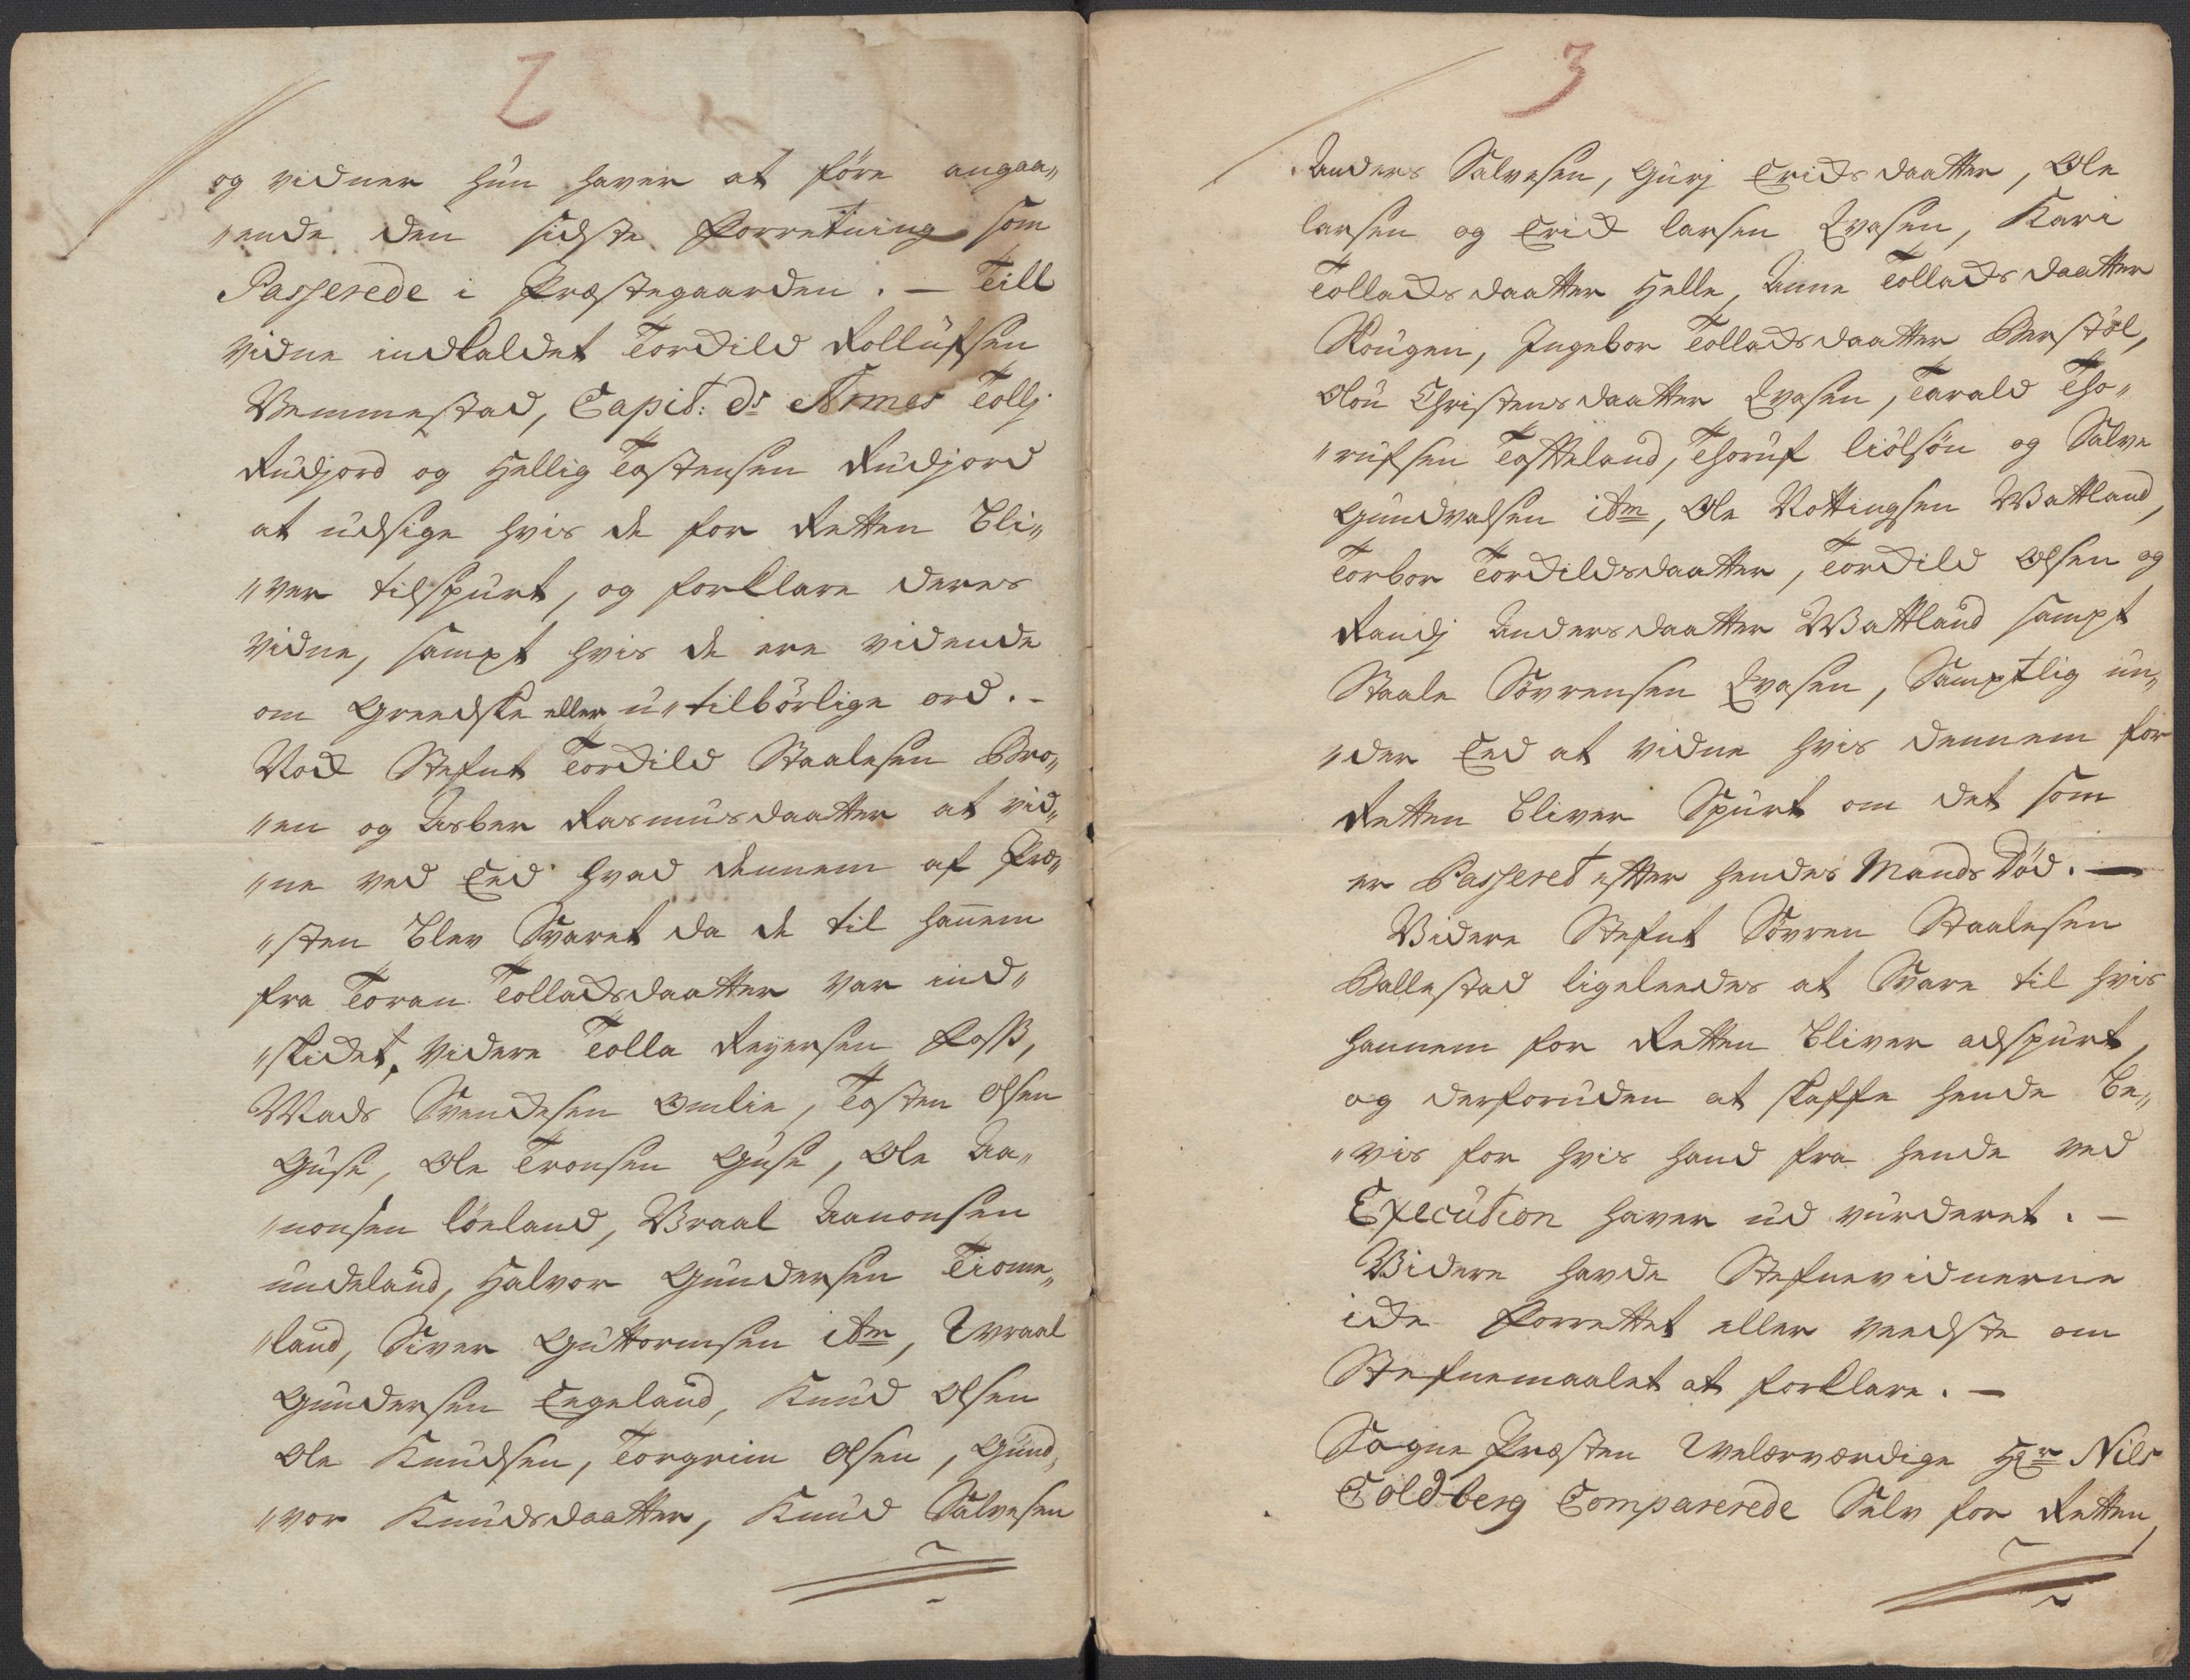 2
og vidner hun haver at före angaa„
„ende den sidste Forretning som
Passerede i Præstegaarden. — Till
vidne indkaldet Torkild Rollufsen
Vemmestad, Capit: ds Armes Tollj
Rudjord og Hellig Tostensen Rudjord
at udsige hvis de for Retten bli„
„ver tilspurt, og forklare deres
vidne, sampt hvis de ere vidende
om Greedske eller u„tilbörlige ord. -
Nock Stefnt Torkild Staalesen Bro„
„en og Asber Rasmusdaatter at vid„
„ne ved Eed hvad dennem af Præ„
„sten blev Svaret da de til hannem
fra Toran Tollacksdaatter var ind„
„skicket, videre Tolla Reyersen Foss,
Mads Svendsen Omlie, Tosten Olsen
Guse, Ole Tronsen Guse, Ole Aa„
„nonsen löeland, Vraal Aanonsen
undeland, Halvor Gundersen Tiome„
„land, Siver Guttormsen itm, Wraal
Gundersen Eegeland, Knud Olsen
Ole Knudsen, Torgrim Olsen, Gund„
„vor Knudsdaatter, Knud Salvesen
3
Anders Salvesen, Gurj Ericksdaatter, Ole
larsen og Erick larsen Qvasen, Kari
Tollacksdaatter Helle, Anne Tollacksdaatter
Skougen, Ingebor Tollacksdaatter Berstöl,
Olou Christensdaatter Qvasen, Tarald Tho„
„rufsen Tostteland, Thoruf liölsön og Salve
Gundvalsen itm, Ole Nottingsen Wattland,
Torbor Torkildsdaatter, Torkild Olsen og
Randj Andersdaatter Wattland sampt
Staale Sövrensen Qvasen, Samptlig un„
„der Eed at vidne hvis dennem for
Retten bliver Spurt om det som
er Passeret efter hendes Mands Död. —
Videre Stefnt Sövren Staalesen
Ballestad ligeleedes at Svare til hvis
hannem for Retten bliver adspurt,
og derforuden at skaffe hende be„
„vis for hvis hand fra hende ved
Execution haver ud vurderet. —
Videre havde Stefnevidnerne
icke Forrettet eller veedste om
Stefnemaalet at forklare. —
Sogne Præsten Welærværdige Hr Nils
Coldberg Comparerede Selv for Retten,